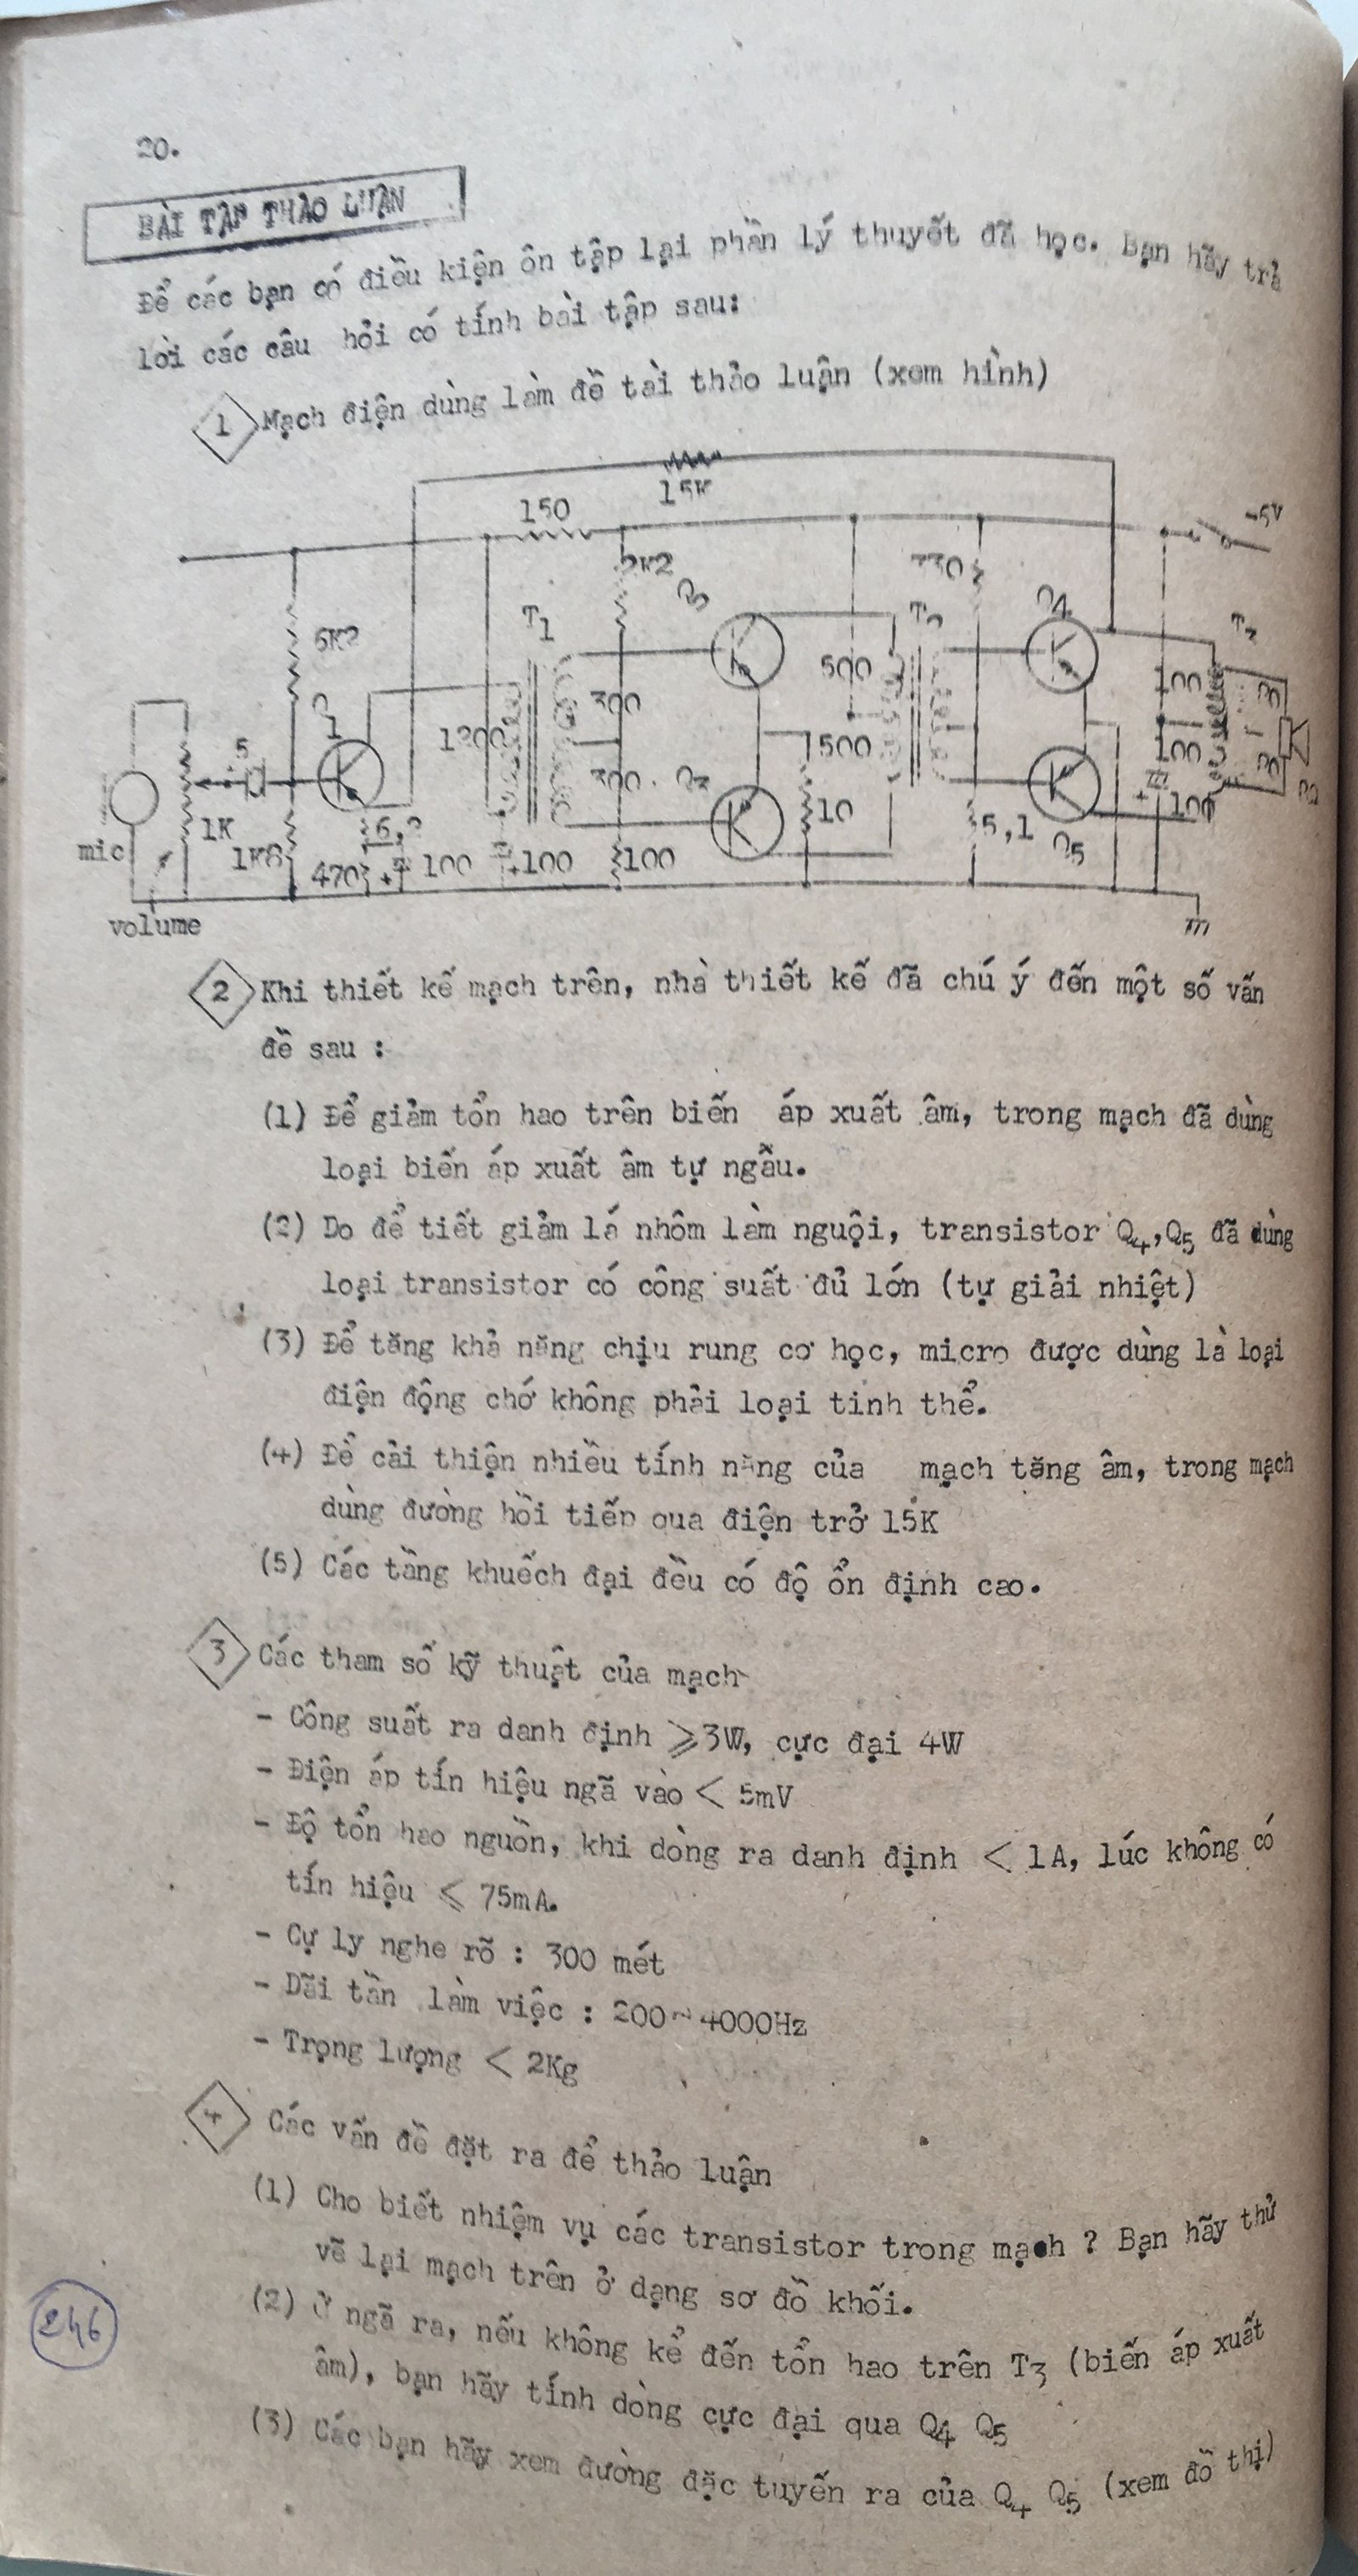 20.
BÀI TẬP THẢO LUẬN
Để các bạn có điều kiện ôn tập lại phần lý thuyết đã học. Bạn hãy trả
lời các câu hỏi có tính bài tập sau:
1 Mạch điện dùng làm đề tài thảo luận (xem hình)
15K
150
-5V
2K2
330
Q4
T1
6K2
500
100
300
1200
500
100
5
300
10
100
1K
5,1
Q5
mic
1K8
470
100
+100
100
volume
2 Khi thiết kế mạch trên, nhà thiết kế đã chú ý đến một số vấn
đề sau :
(1) Để giảm tổn hao trên biến áp xuất âm, trong mạch đã dùng
loại biến áp xuất âm tự ngẫu.
(2) Do để tiết giảm lá nhôm làm nguội, transistor Q4,Q5 đã dùng
loại transistor có công suất đủ lớn (tự giải nhiệt)
(3) Để tăng khả năng chịu rung cơ học, micro được dùng là loại
điện động chớ không phải loại tinh thể.
(4) Để cải thiện nhiều tính năng của mạch tăng âm, trong mạch
dùng đường hồi tiếp qua điện trở 15K
(5) Các tầng khuếch đại đều có độ ổn định cao.
3 Các tham số kỹ thuật của mạch
- Công suất ra danh định ⩾3W, cực đại 4W
- Điện áp tín hiệu ngã vào < 5mV
- Độ tổn hao nguồn, khi dòng ra danh định < 1A, lúc không có
tín hiệu ⩽ 75mA.
- Cự ly nghe rõ : 300 mét
- Dãi tần làm việc : 200~4000Hz
- Trọng lượng < 2Kg
4 Các vấn đề đặt ra để thảo luận
(1) Cho biết nhiệm vụ các transistor trong mạch ? Bạn hãy thử
vẽ lại mạch trên ở dạng sơ đồ khối.
(2) Ở ngã ra, nếu không kể đến tổn hao trên T3 (biến áp xuất
âm), bạn hãy tính dòng cực đại qua Q4 Q5
(3) Các bạn hãy xem đường đặc tuyến ra của Q4 Q5 (xem đồ thị)
246